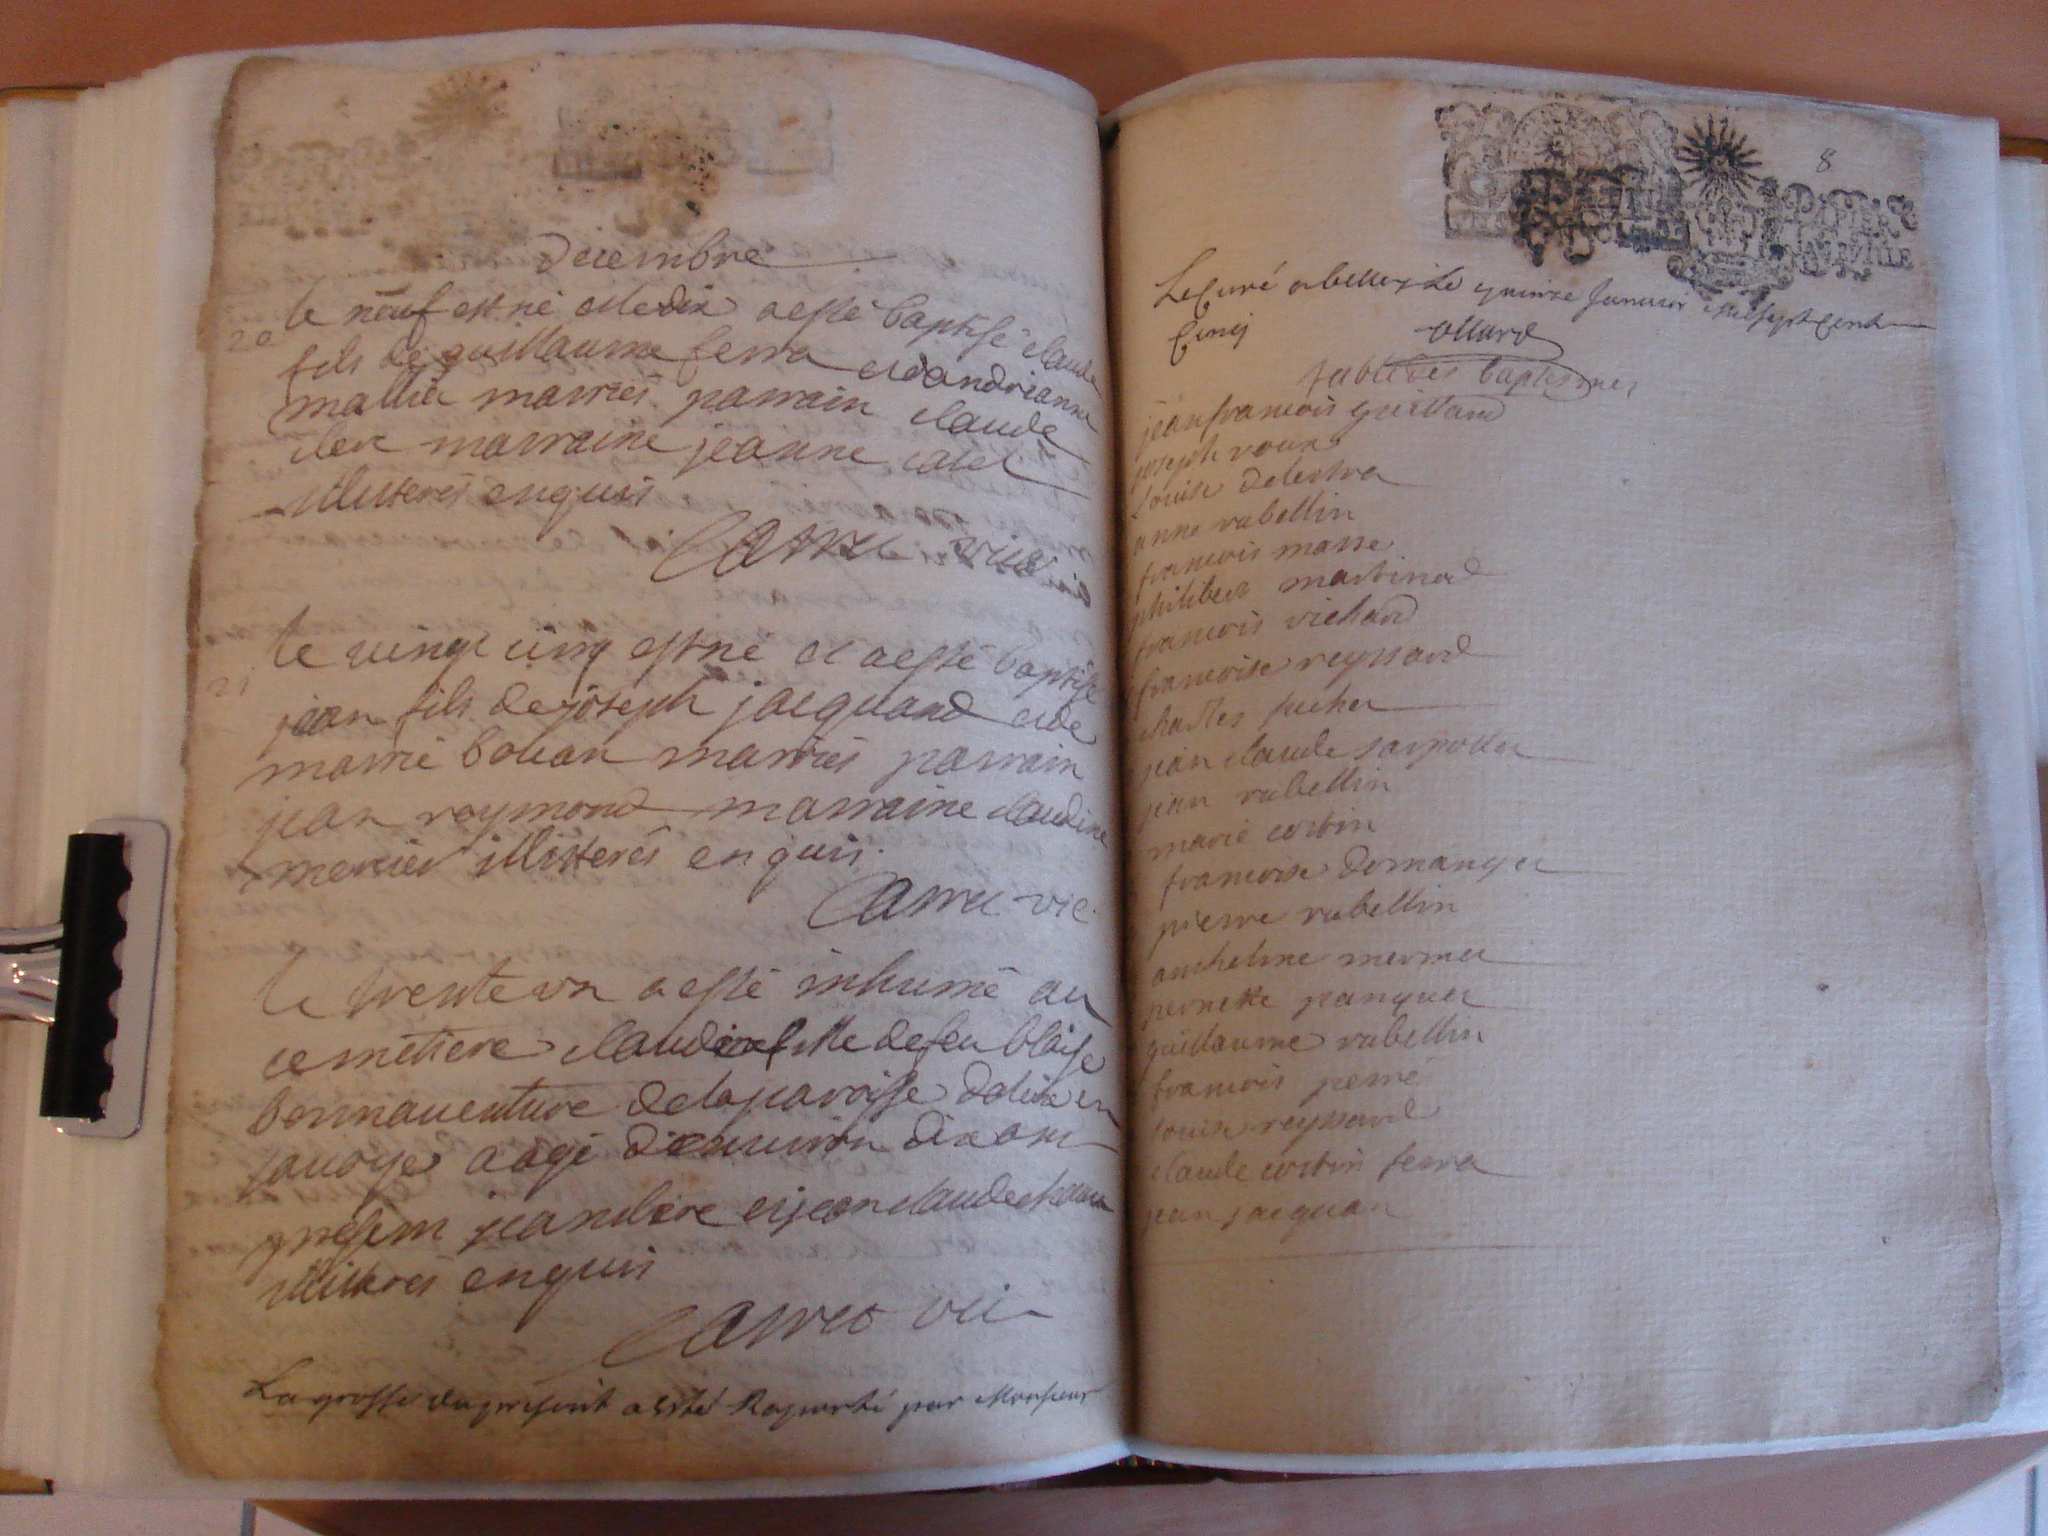 decembre
20
le neuf est né et le dix a esté baptisé claude
fils de guillaume ferra et d'andrianne
mallia marries parrain claude
clerc marraine jeanne
illisteres enquis
Carrel vic
21
le vingt cinq est né et a esté baptisé
jean fils de joseph jacquand et de
marrie bolian marries parrain
jean raymond marraine claudine
mercier illisteres enquis.
Carrel vic.
le trente un a esté inhumé au
cemetiere claudine fille de feu blaise
bonnaventure de la paroisse en
savoye aagé d'environ dix ans
presens jean clere et jean claude
illisteres enquis
Carrel vic
La grosse du present a esté Raporté par Monsieur
8
Le Curé a belley Le quinze Janvier mil sept cent
Cinq
ollard
table des baptesmes
jean francois guilland
joseph roux
louise delestra
anne rubellin
francois masse
philibert martinand
francois richard
francoise reyssard
charles
jean claude
jean rubellin
marie cortin
francoise domanget
pierre rubellin
anthelme mermet
pernette
guillaume rubellin
francois perré
louise reyssard
claude cortin ferra
jean jacquan